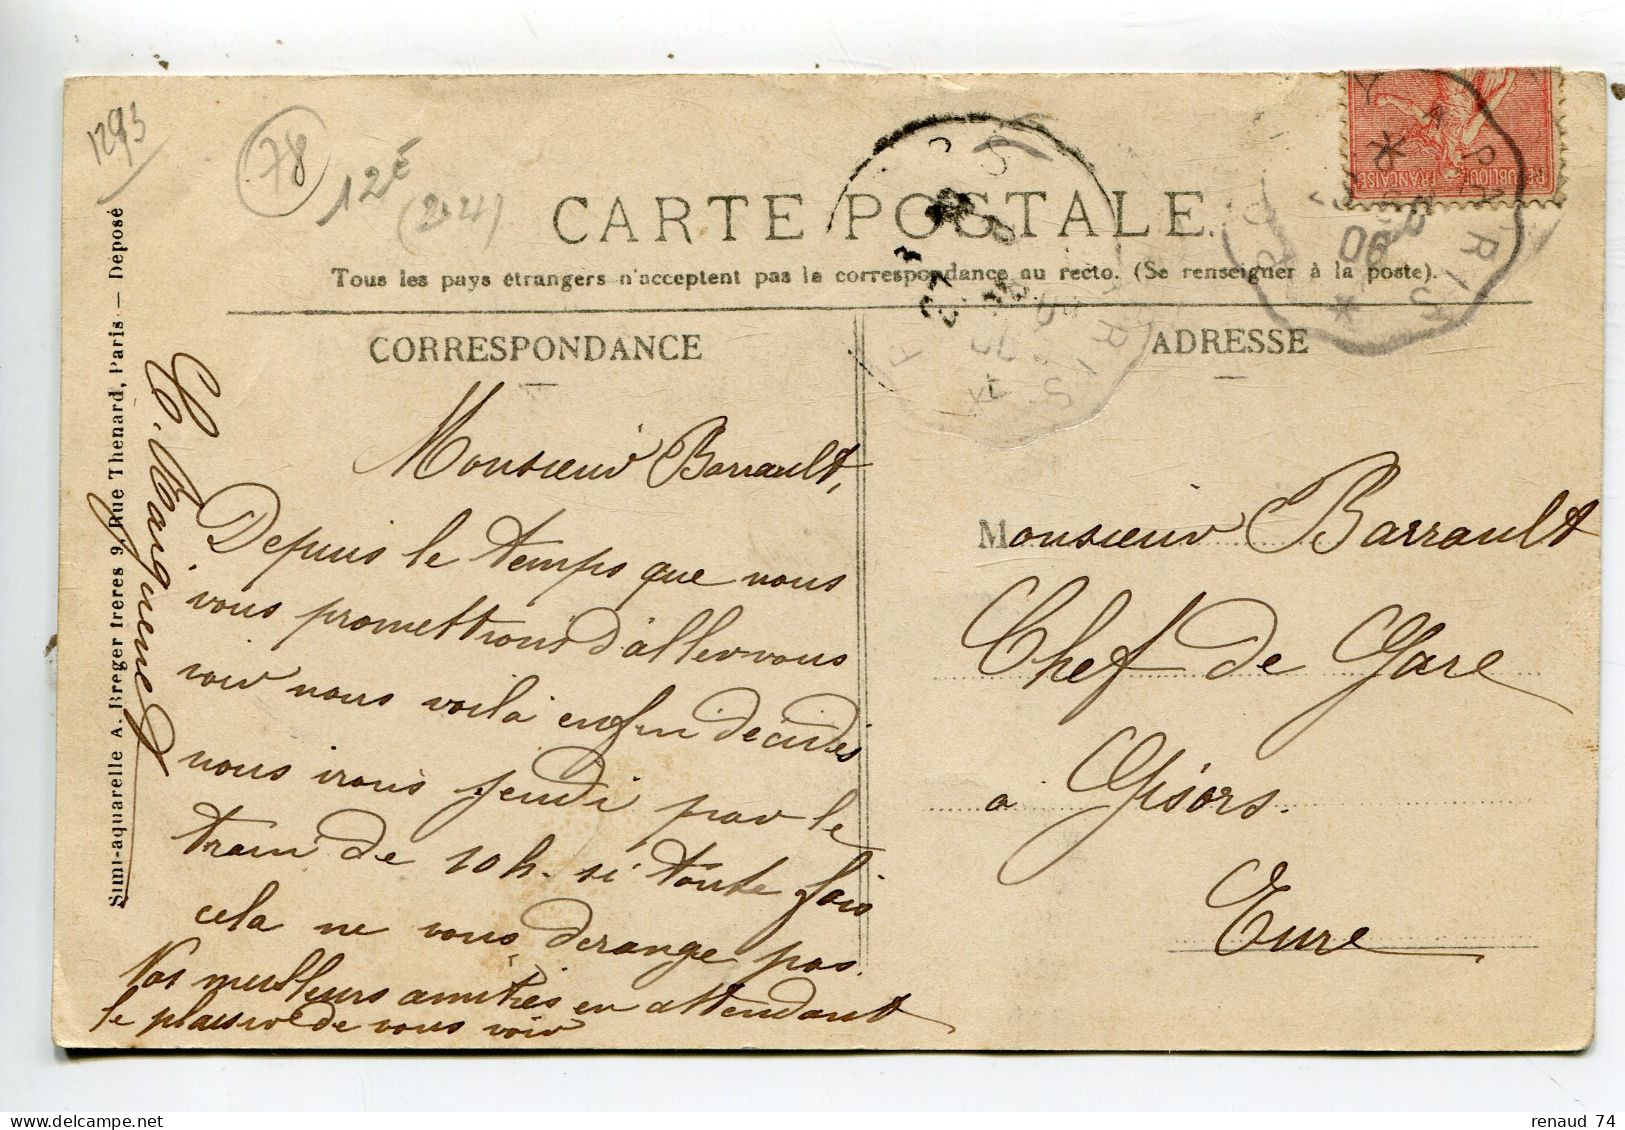 1293
78
12é
(2021)
CARTE POSTALE
Tous les pays étrangers n'acceptent pas la correspondance au recto. (Se renseigner à la poste).
CORRESPONDANCE
Monsieur Barrault,
Depuis le temps que nous
vous promettions d'aller vous
voir nous voilà enfin décidés
nous irons jeudi par le
train de 10h. si toute fois
cela ne vous derange pas.
Nos meilleurs amitiés en attendant
le plaisir de vous voir
Simi-aquarelle A. Breger frères 9, Rue Thenard, Paris — Déposé
ADRESSE
Monsieur Barrault
Chef de Gare
a Gisors.
Eure
REPUBLIQUE FRANÇAISE
PARIS
06
renaud 74